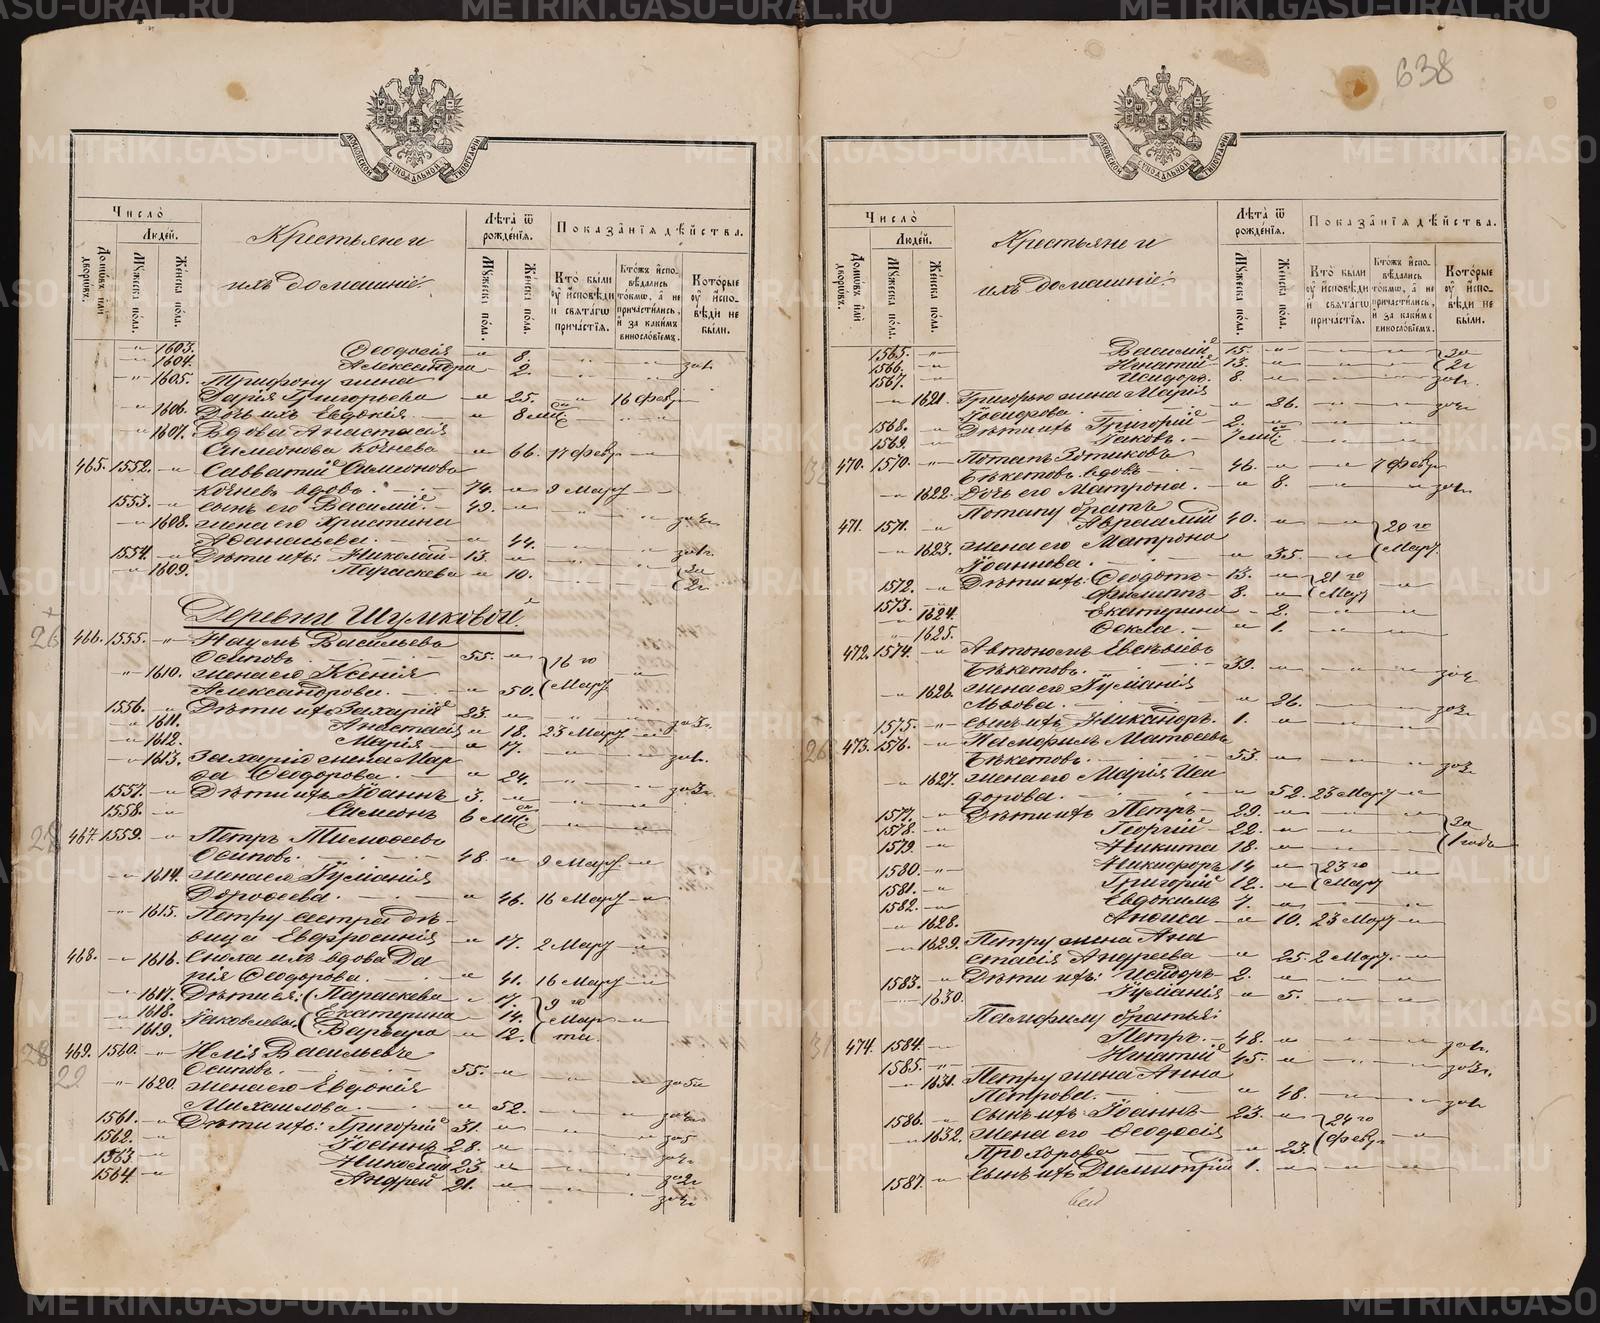 638
МОСКОВСКОЙ СѴНОДАЛЬНОЙ ТИПОГРАФІИ
Число̀
Людей.
Домѡвъ или дворѡвъ.
Мꙋжеска пола.
Женска пола.
Крестьяне и
ихъ домашніе.
Лѣта ѿ рождéнїѧ.
Мꙋжеска пола.
Женска пола.
Показанїѧ дѣйства.
Кто были ꙋ исповѣди и свѧтагѡ причастїѧ.
Ктожъ исповѣдались токмѡ, а не причастились, и за какимъ винословїемъ.
Которые ꙋ исповѣди не были.
1603. Ѳеодосія 8.
1604. Александра 2.
1605. Трифону жена
Дарія Григорьева 25. 16 Февр
1606. Дочь ихъ Евдокія. 8 мѣс
1607. Вдова Анастасія
Симеонова Кочнева 66. 17 Февр
465. 1552. Савватій Симеоновъ
Кочневъ вдовъ. 74. 9 Мар
1553. сынъ его Василій. 49.
1608. жена его Христина
Аѳанасьева. 44.
1554. Дѣти ихъ: Николай 13.
1609. Параскева 10.
Деревни Шумковой
26 466. 1555. Наумъ Васильевъ
Осиповъ. 55. 16 го
1610. жена его Ксенія Мар
Александрова. 50.
1556. Дѣти ихъ Захарій 23.
1611. Анастасія 18. 23 Мар
1612. Марія 17.
1613. Захарію жена Мар
ѳа Ѳеодорова. 24.
1557. Дѣти ихъ Іоаннъ 3.
1558. Симеонъ 6 мѣс
28 467. 1559. Петръ Тимоѳеевъ
Осиповъ. 48. 9 Мар
1614. жена его Іуліанія
Дороѳеева. 46. 16 Мар
1615. Петру сестра дѣ-
вица Евфросинія 17. 2 Мар
468. 1616. Сноха ихъ вдова Да
рія Ѳеодорова. 41. 16 Мар
1617. Дѣти ея: Параскева 17. 9 го
1618. Яковлевы Екатерина 14. Мар
1619. Варвара 12. та
28 469. 1560. Илія Васильевъ
29 Осиповъ. 55.
1620. жена его Евдокія
Михаилова. 52.
1561. Дѣти ихъ: Григорій 31.
1562. Іоаннъ 28.
1563. Николай 23.
1564. Андрей 21.
МОСКОВСКОЙ СѴНОДАЛЬНОЙ ТИПОГРАФІИ
Число̀
Людей.
Домѡвъ или дворѡвъ.
Мꙋжеска пола.
Женска пола.
Крестьяне и
ихъ домашніе.
Лѣта ѿ рождéнїѧ.
Мꙋжеска пола.
Женска пола.
Показанїѧ дѣйства.
Кто были ꙋ исповѣди и свѧтагѡ причастїѧ.
Ктожъ исповѣдались токмѡ, а не причастились, и за какимъ винословїемъ.
Которые ꙋ исповѣди не были.
1565. Василій 15. за
1566. Игнатій 13. 2 г
1567. Исидоръ. 8.
1621. Григорью жена Марія
Ѳеодорова. 26.
1568. Дѣти ихъ Григорій 2.
1569. Іаковъ. 7 мѣс
470. 1570. Потапъ Зотиковъ
Бѣкетовъ вдовъ 46. 7 Февр
1622. Дочь его Матрона. 8.
Потапу братъ
471. 1571. Авраамій 40. 20 го
1623. жена его Матрона Мар
Іоаннова. 35.
1572. Дѣти ихъ: Ѳеодотъ 13. 21 го
1573. Филиппъ 8. Мар
1624. Екатерина 2.
1625. Ѳекла. 1.
472. 1574. Автономъ Евсѣвіевъ
Бѣкетовъ. 39.
1626. жена его Іуліанія
Львова. 26.
1575. сынъ ихъ Никаноръ. 1.
26 473. 1576. Памфилъ Матѳеевъ
Бѣкетовъ. 53.
1627. жена его Марія Иси
дорова. 52. 23 Мар
1577. Дѣти ихъ Петръ 29.
1578. Георгій 22. за
1579. Никита 18. 1 года
1580. Никифоръ 14 23 го
1581. Григорій 12. Мар
1582. Евдокимъ 7.
1628. Анѳиса 10. 23 Мар
1629. Петру жена Ана
стасія Андреева 25. 2 Мар.
1583. Дѣти ихъ: Исидоръ 2.
1630. Іуліанія 5.
Памфилу братья:
31 474. 1584. Петръ. 48.
1585. Игнатій 45.
1631. Петру жена Анна
Петрова. 48.
1586. сынъ ихъ Іоаннъ 23. 24 го
1632. жена его Ѳеодосія Февр
Прохорова 23.
1587. сынъ ихъ Димитрій 1.
METRIKI.GASO-URAL.RU